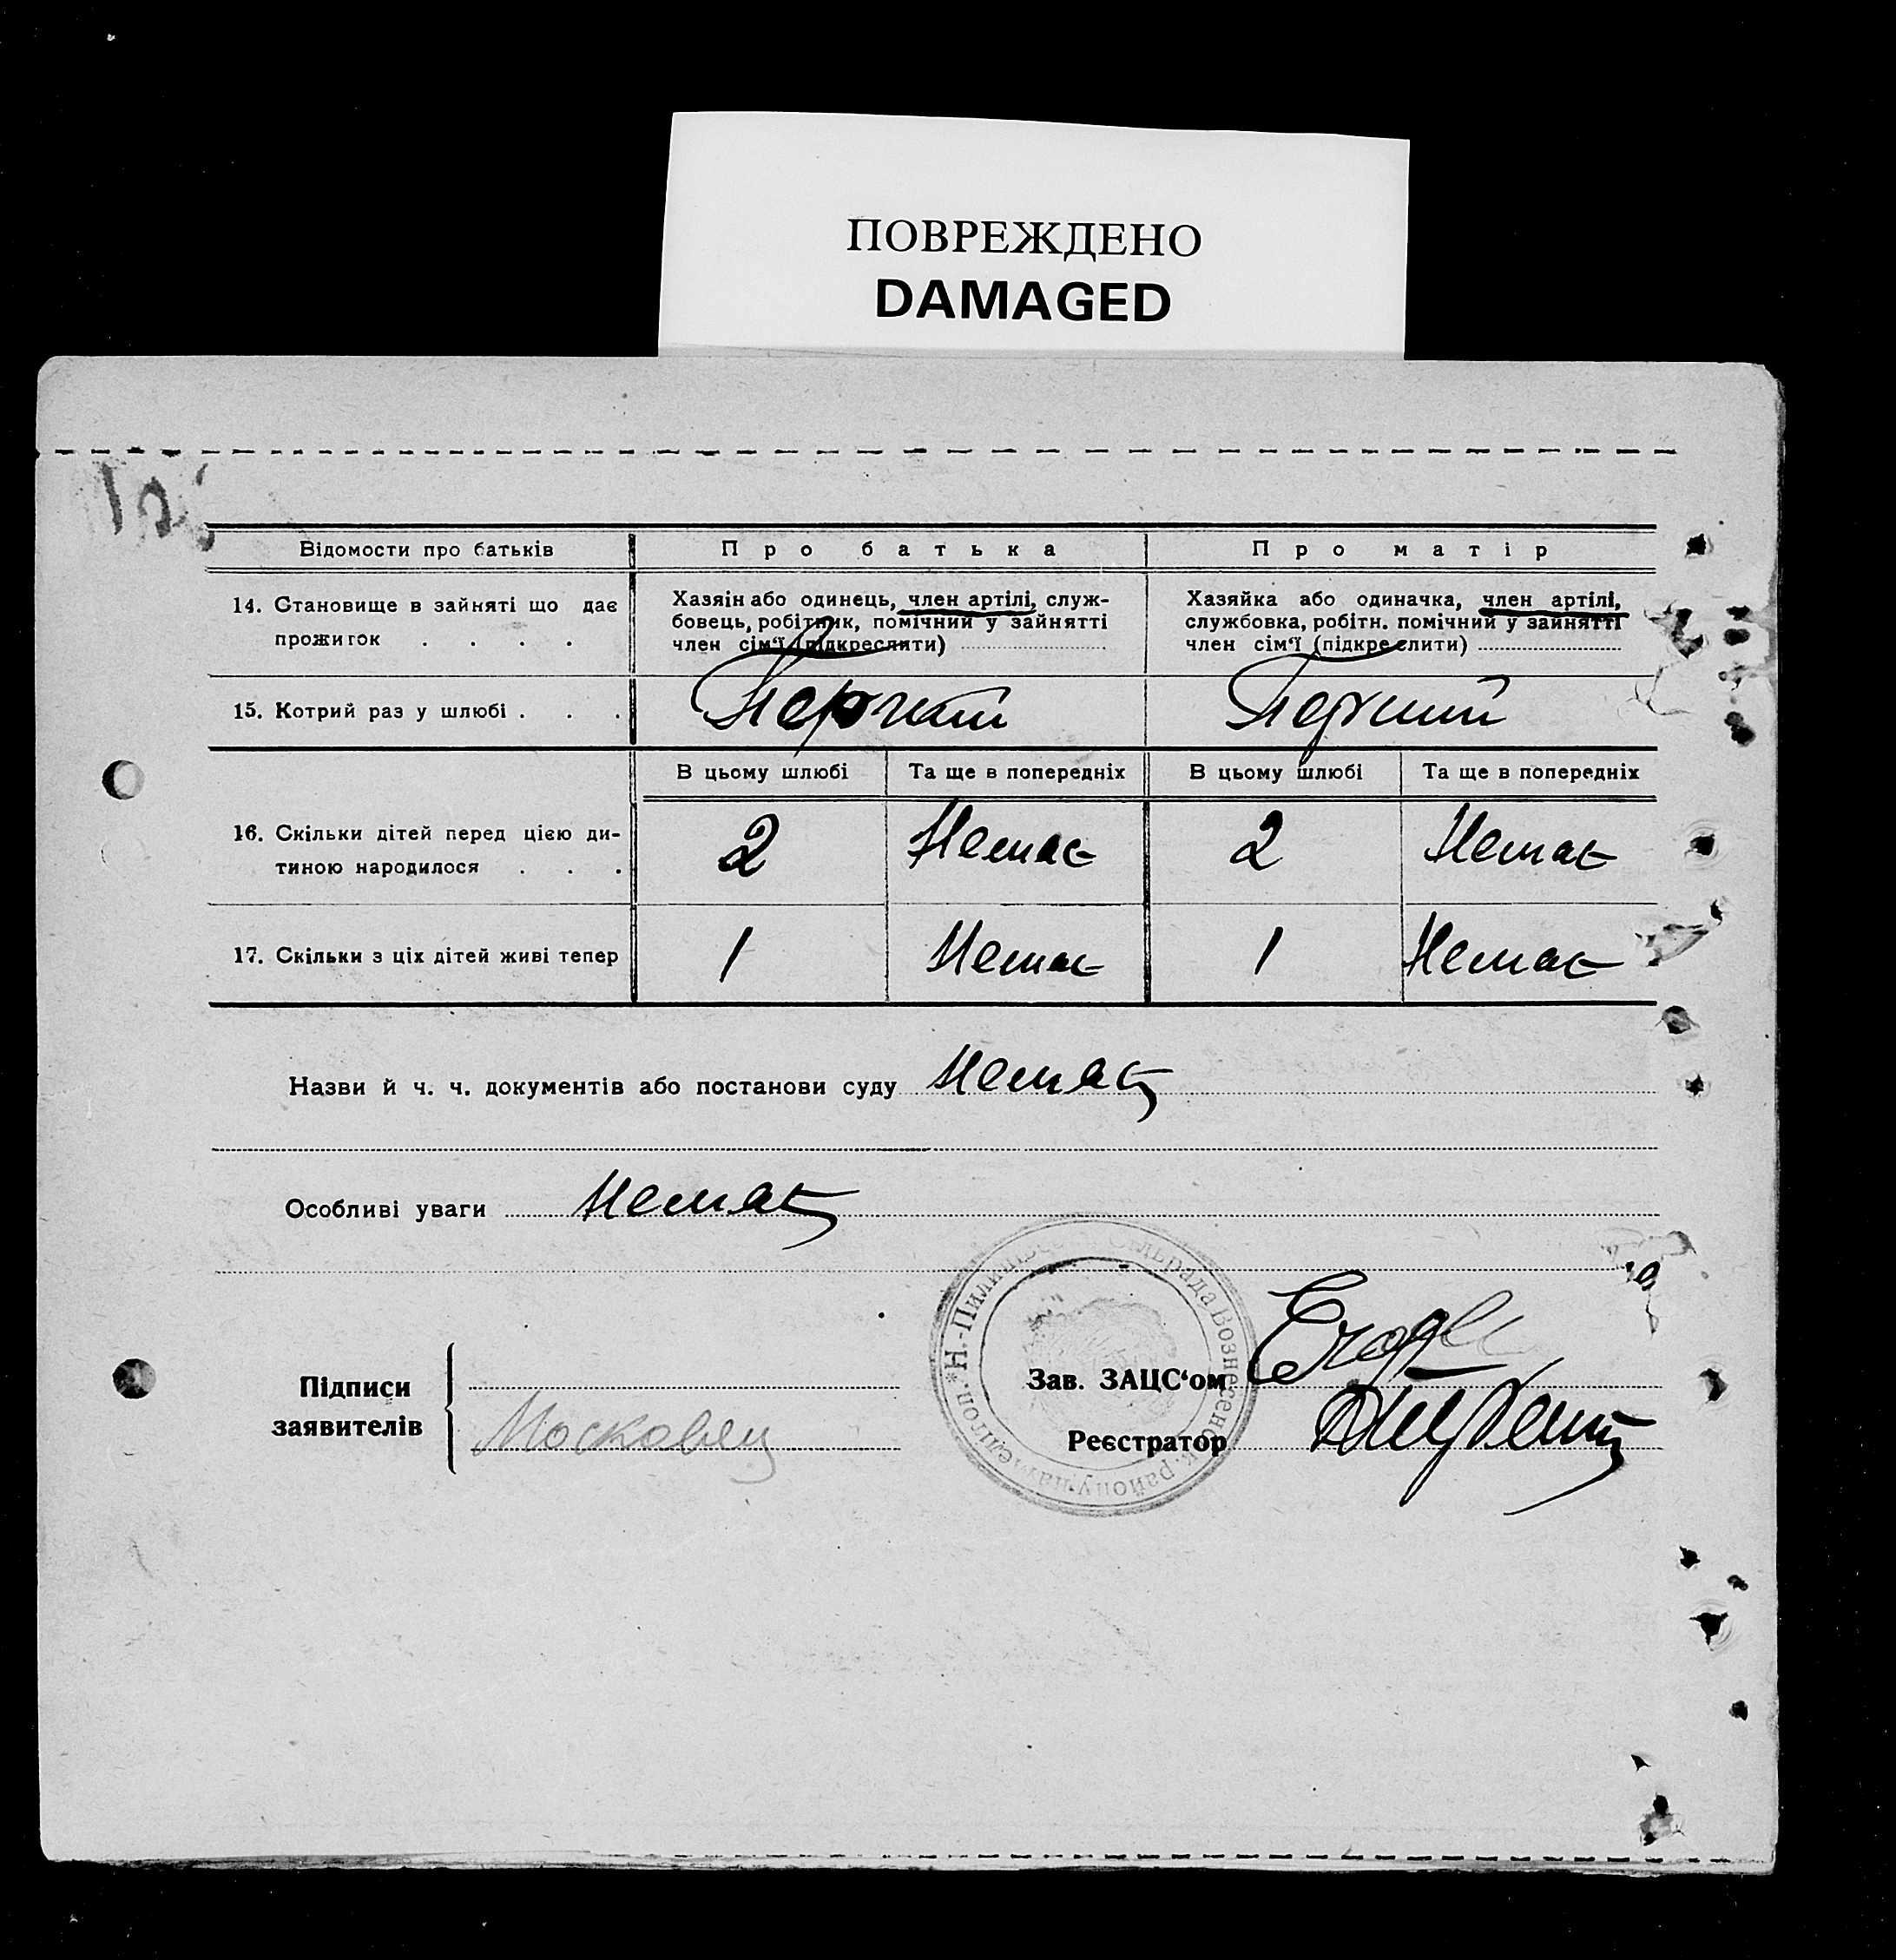 ПОВРЕЖДЕНО
DAMAGED
Відомости про батьків
Про батька
Про матір
14. Становище в зайняті що дає
прожиток . . . .
Хазяін або одинець, член артілі, служ-
бовець, робітник, помічний у зайнятті
член сім'ї (підкреслити)
Хазяйка або одиначка, член артілі,
службовка, робітн. помічний у зайнятті
член сім'ї (підкреслити)
15. Котрий раз у шлюбі . . .
Перший
Перший
В цьому шлюбі
Та ще в попередніх
В цьому шлюбі
Та ще в попередніх
16. Скільки дітей перед цією ди-
тиною народилося . . .
2
Немає
2
Немає
17. Скільки з ціх дітей живі тепер
1
Немає
1
Немає
Назви й ч. ч. документів або постанови суду Немає
Особливі уваги Немає
Підписи
заявителів
Московец
Зав. ЗАЦС'ом
Реєстратор